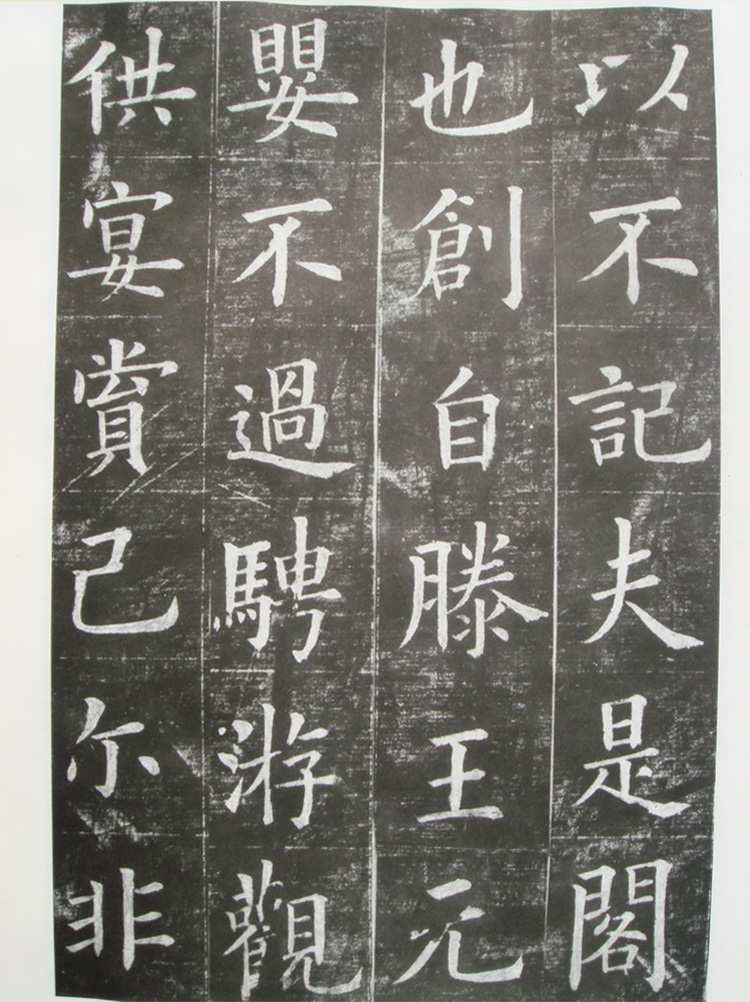 以不記夫是閣
也創自滕王元
嬰不過騁游觀
供宴賞已尔非